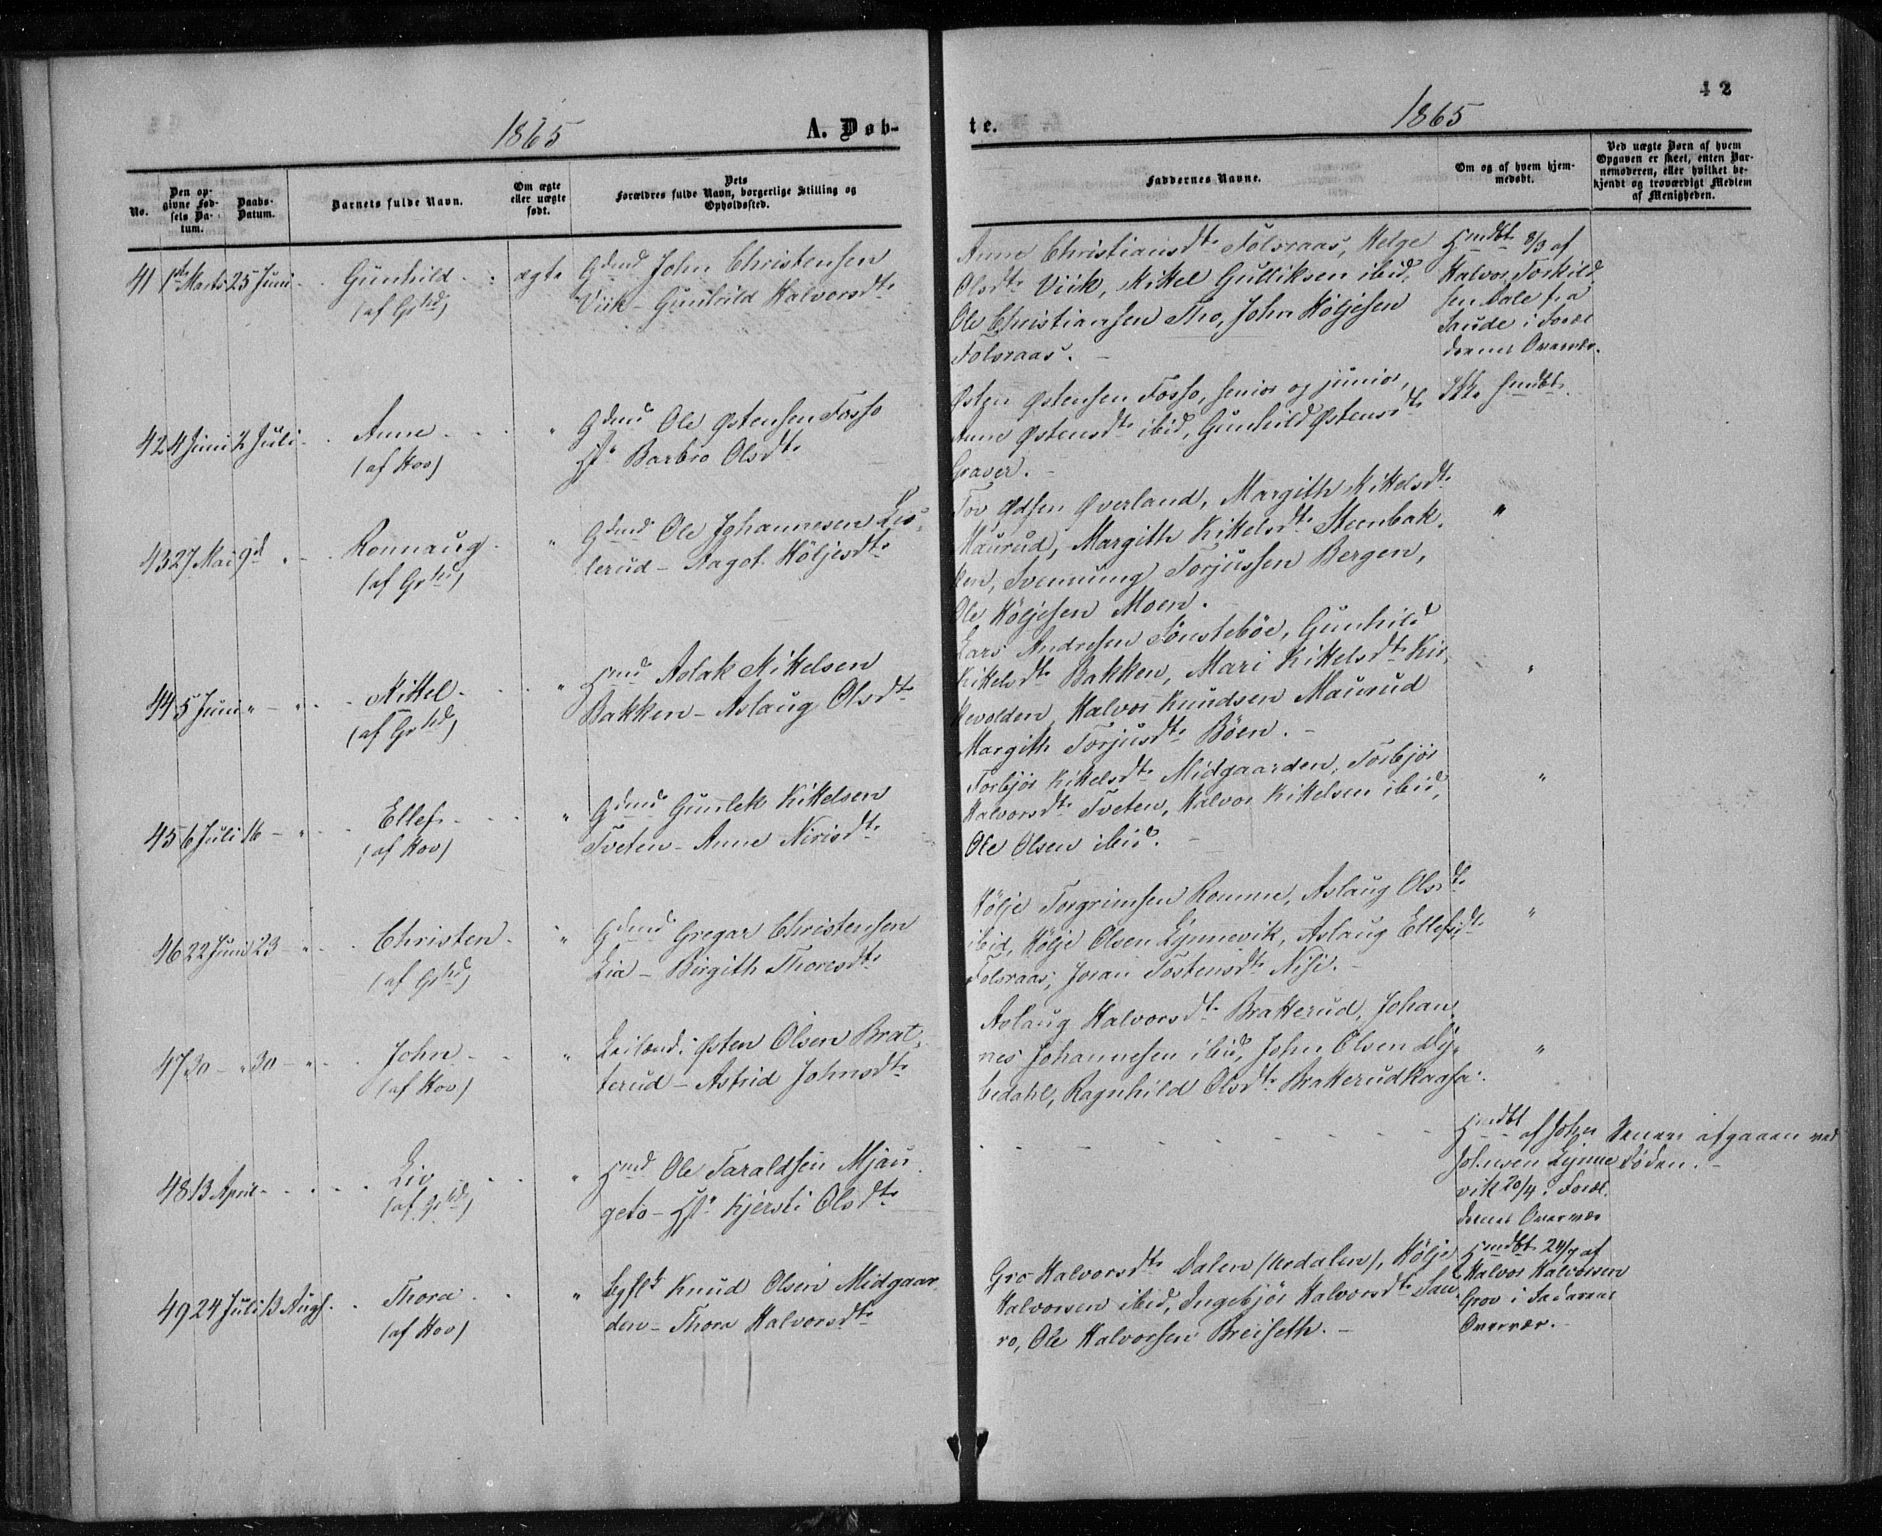 42
1865
A. Døb-
te.
1865
No.
Den op-
givne Fød-
sels Da-
tum.
Daabs-
Datum.
Barnets fulde Navn.
Om ægte
eller uægte
født.
Dets
Forældres fulde Navn, borgerlige Stilling og
Opholdssted.
Faddernes Navne.
Om og af hvem hjem-
medøbt.
Ved uægte Børn af hvem
Opgaven er skeet, enten Bar-
nemoderen, eller hvilket be-
kjendt og troværdigt Medlem
af Menigheden.
41 1ste Marts 25 Juni Gunhild ægte Gdmd John Christensen
(af Grhd) Viik - Gunhild Halvorsdtr
Anne Christiansdtr Folsraas, Helge
Olsdtr Viik, Kittel Gulliksen ibid,
Ole Christiansen Tho, John Høljesen
Folsraas. -
Hmdbt 8/3 af
Halvor Torkild
sen Dale fra
Saude i Foræl
drenes Overvær.
42 4 Juni 2 Juli Anne " Gdmd Ole Østensen Fosso
(af Hov) H. Barbro Olsdtr
Østen Østensen Fosso, senior og junior,
Anne Østensdtr ibid, Gunhild Østensdtr
Graver. -
Ikke hmdbt.
43 27 Mai 9d " Ronnaug " Gdmd Ole Johannesen Lis-
(af Grhd) lerud - Aagot Höljesdtr
Tov Oddsen Øverland, Margith Kittelsdtr
Maurud, Margith Kittelsdtr Steenbak-
ken, Svenung Torjussen Bergen,
Ole Höljesen Moen.
"
44 5 Juni " - " Kittel " Hmd Aslak Kittelsen
(af Grhd) Bakken - Aslaug Olsdtr
Lars Andresen Tönsteböe, Gunhild
Kittelsdtr Bakken, Mari Kittelsdtr Kir-
kevolden, Halvor Knudsen Maurud
Margith Torjusdtr Böen. -
"
45 6 Juli 16 - " Ellef " Gdmd Gunlek Kittelsen
(af Hov) Tveten - Anne Nirisdtr
Torbjör Kittelsdtr Midgaarden, Torbjör
Halvorsdtr Tveten, Halvor Kittelsen ibid,
Ole Olsen ibid. -
"
46 22 Juni 23 - " Christen " Gdmd Gregar Christensen
(af Grhd) Lia - Birgith Thoresdtr
Hölje Torgrimsen Romme, Aslaug Olsdtr
ibid, Hölje Olsen Lynnevik, Aslaug Ellefsdtr
Folsraas, Joran Tostensdtr Nisi. -
"
47 30 - " 30 - " John " Leilænd. Østen Olsen Brat-
(af Hov) terud - Astrid Johnsdtr
Aslaug Halvorsdtr Bratterud, Johan-
nes Johannesen ibid, John Olsen Dy-
bedahl, Ragnhild Olsdtr Bratterud
"
48 13 April Liv " Hmd Ole Taraldsen Mjau-
(af Grhd) geto - H. Kjersti Olsdtr
Hmdbt af John
Johnsen Lynne
vik 20/4 i Foræl.
drenes Overvær
afgaaen ved
Døden. -
49 24 Juli 13 Augs. Thora " Knud Olsen Midgaar
(af Hov) den - Thora Halvorsdtr
Gro Halvorsdtr Dalen (Nedalen), Hölje
Halvorsen ibid, Ingebjör Halvorsdtr Sau
ro, Ole Halvorsen Breiseth. -
Hmdbt 24/7 af
Halvor Halvorsen
Grov i
Overvær. -